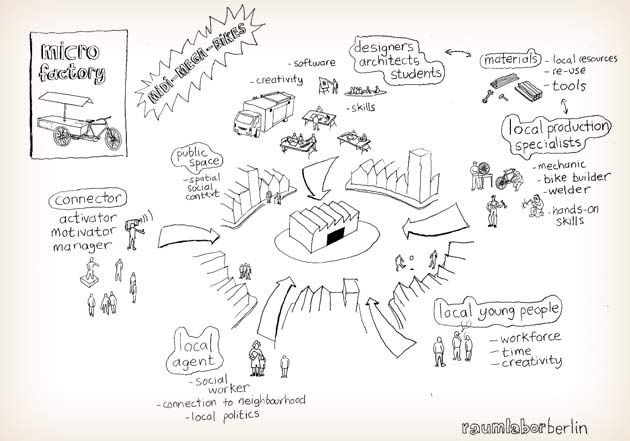 micro
factory
MIDI-MEGA-BIKES
- software
- creativity
- skills
designers
architects
students
materials
- local resources
- re-use
- tools
local production
specialists
- mechanic
- bike builder
- welder
- hands-on
skills
public
space
- spatial
social
context
connector
activator
motivator
manager
local
agent
- social
worker
- connection to neighbourhood
- local politics
local young people
- workforce
- time
- creativity
raumlaborberlin